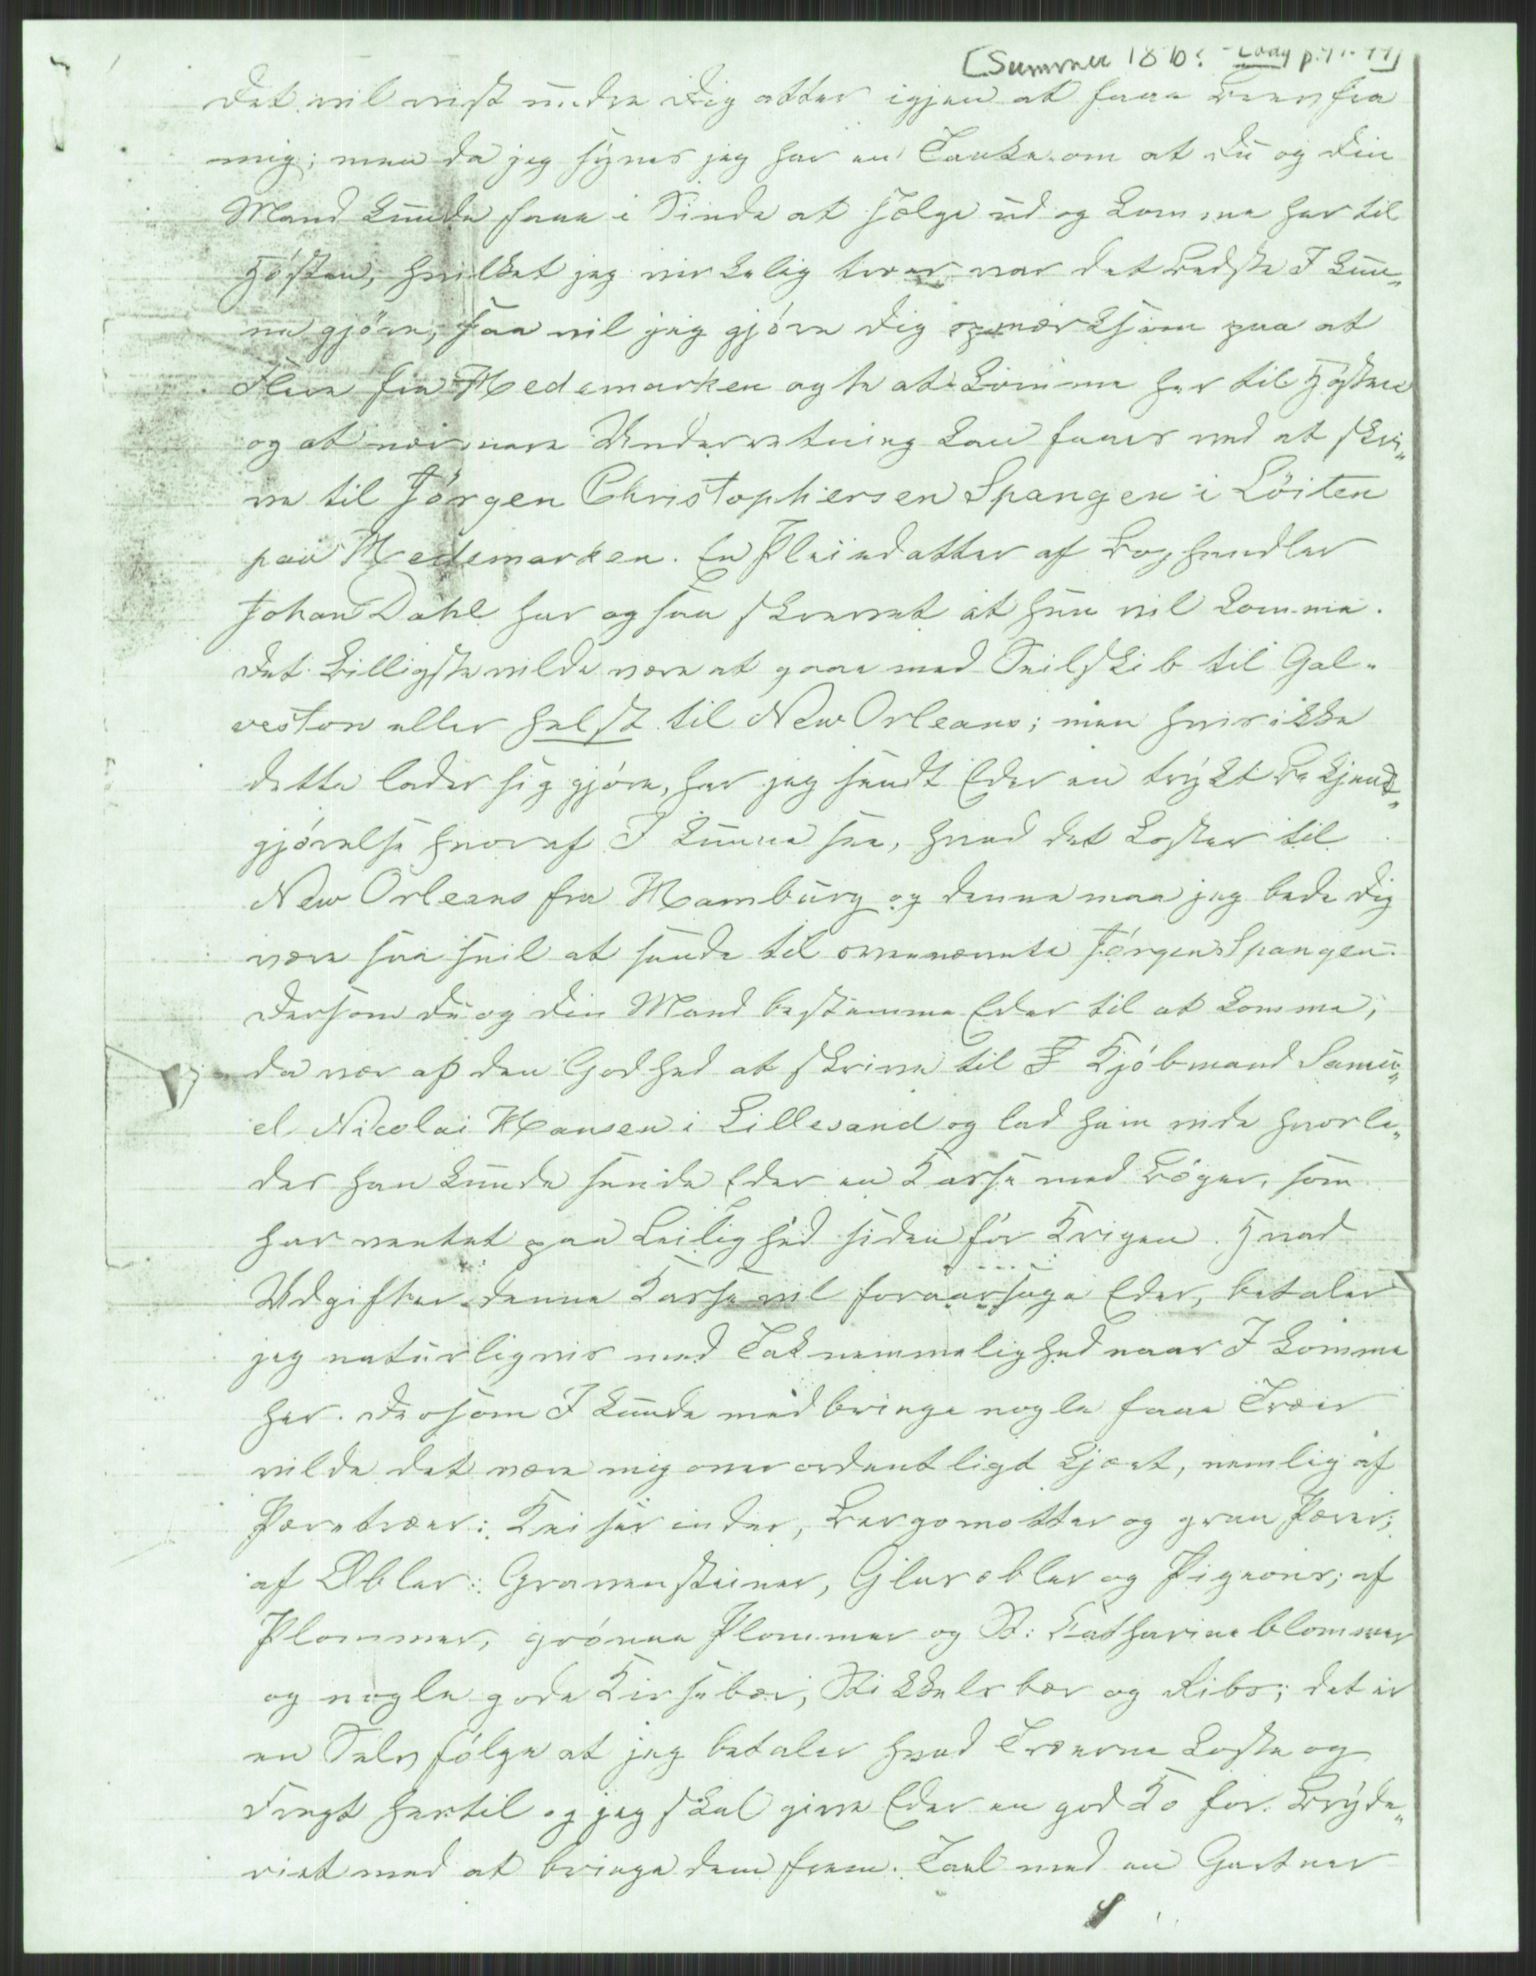 [Summer 1870? - Lady p. 71-77]
Det vil vist undre Dig atter igjen at faae Brev fra
mig; men da jeg synes jeg har en Tanke om at Du og Din
Mand kunde faae i Sinde at sælge ud og komme her til
Hösten, hvilket jeg virkelig troer var det bedste I kun„
ne gjöre, saa vil jeg gjöre Dig opmærksom paa at
Flere fra Hedemarken agte at komme her til Hösten
og at nærmere Underretning kan faaes ved at skri„
ve til Jörgen Christophersen Spangen i Löiten
paa Hedemarken. En Pleiedatter af Boghandler
Johan Dahl har ogsaa skrevet at hun vil komme.
Det billigste vilde være at gaae med Seilskib til Gal„
veston eller helst til New Orleans; men hvis ikke
dette lader sig gjöre, har jeg sendt Eder en trykt Bekjendt„
gjörelse hvoraf I kunne see, hvad det koster til
New Orleans fra Hamburg og denne maa jeg bede Dig
være saa snil at sende til ovennævnte Jörgen Spangen.
Dersom Du og Din Mand bestemme Eder til at komme,
da vær af den Godhed at skrive til Kjöbmand Samu„
el Nicolai Hansen i Lillesand og lad ham vide hvorle„
des han kunde sende Eder en Kasse med Böger, som
har ventet paa Leilighed siden för Krigen. Hvad
Udgifter denne Kasse vil foraarsage Eder, betaler
jeg naturligvis med Taknemmelighed naar I komme
her. Dersom I kunde medbringe nogle faae Træer
vilde det være mig overordentligt kjært, nemlig af
Pæretræer: Keiserinder, Bergamotter og graae Pærer;
af Æbler: Gravensteiner, Glasæbler og Pigeons; af
Plommer, grönne Plommer og St: Catharineblommer
og nogle gode Kirsebær, Stikkelsbær og Ribs; det er
en Selvfölge at jeg betaler hvad Træerne koste og
Fragt hertil og jeg skal give Eder en god Ko for Bryde„
riet med at bringe dem frem. Tael med en Gartner